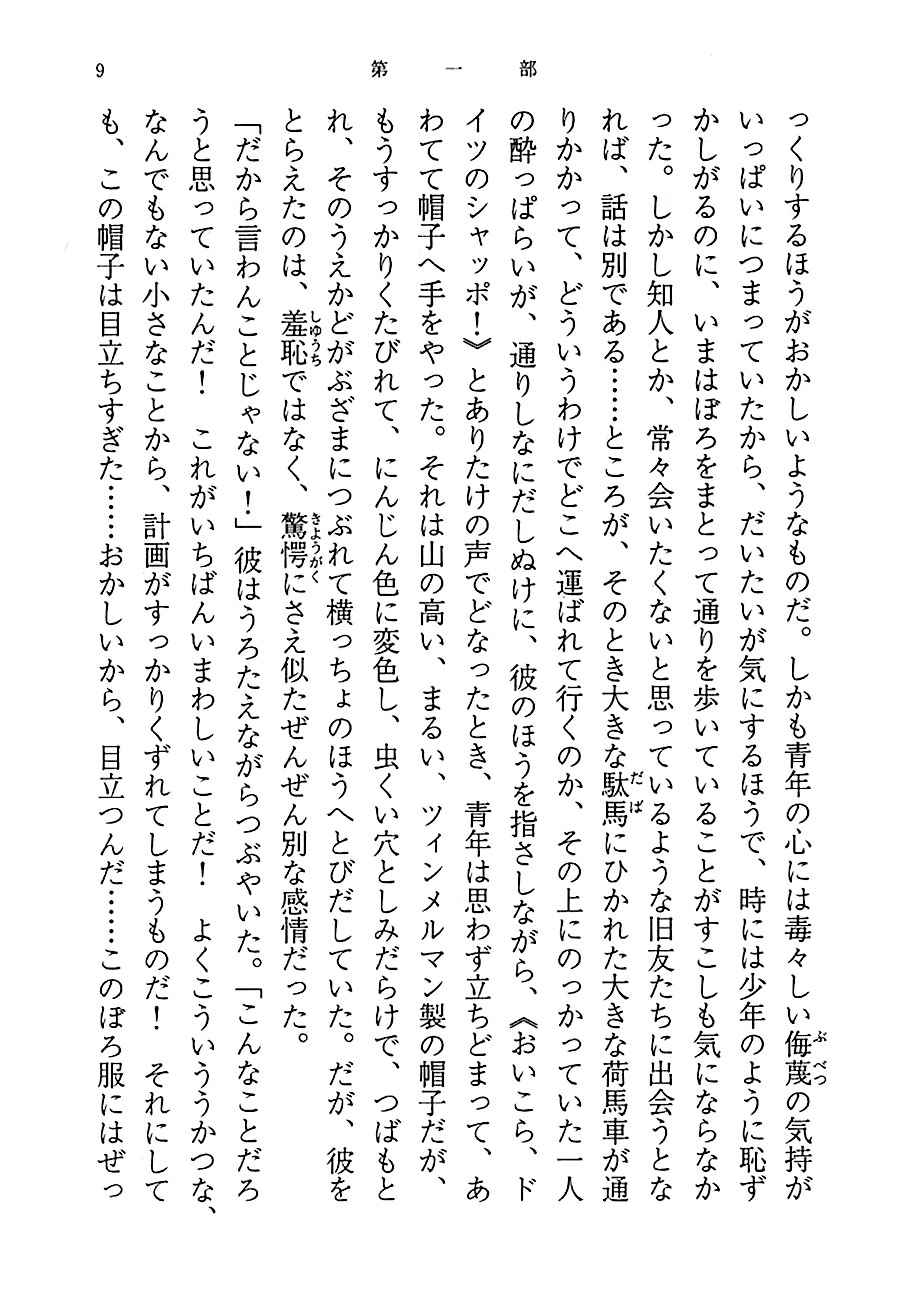 9
第一部
っくりするほうがおかしいようなものだ。しかも青年の心には毒々しい侮蔑の気持が
いっぱいにつまっていたから、だいたいが気にするほうで、時には少年のように恥ず
かしがるのに、いまはぼろをまとって通りを歩いていることがすこしも気にならなか
った。しかし知人とか、常々会いたくないと思っているような旧友たちに出会うとな
れば、話は別である……ところが、そのとき大きな駄馬にひかれた大きな荷馬車が通
りかかって、どういうわけでどこへ運ばれて行くのか、その上にのっかっていた一人
の酔っぱらいが、通りしなにだしぬけに、彼のほうを指さしながら、《おいこら、ド
イツのシャッポ！》とありたけの声でどなったとき、青年は思わず立ちどまって、あ
わてて帽子へ手をやった。それは山の高い、まるい、ツィンメルマン製の帽子だが、
もうすっかりくたびれて、にんじん色に変色し、虫くい穴としみだらけで、つばもと
れ、そのうえかどがぶざまにつぶれて横っちょのほうへとびだしていた。だが、彼を
とらえたのは、羞恥ではなく、驚愕にさえ似たぜんぜん別な感情だった。
「だから言わんことじゃない！」彼はうろたえながらつぶやいた。「こんなことだろ
うと思っていたんだ！　これがいちばんいまわしいことだ！　よくこういううかつな、
なんでもない小さなことから、計画がすっかりくずれてしまうものだ！　それにして
も、この帽子は目立ちすぎた……おかしいから、目立つんだ……このぼろ服にはぜっ